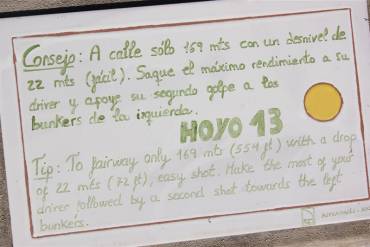 Consejo: A calle sólo 169 mts con un desnivel de
22 mts (fácil). Saque el máximo rendimiento a su
driver y apoye su segundo golpe a los
bunkers de la izquierda.
HOYO 13
Tip: To fairway only 169 mts (554 ft) with a drop
of 22 mts (72 ft), easy shot. Make the most of your
driver followed by a second shot towards the left
bunkers.